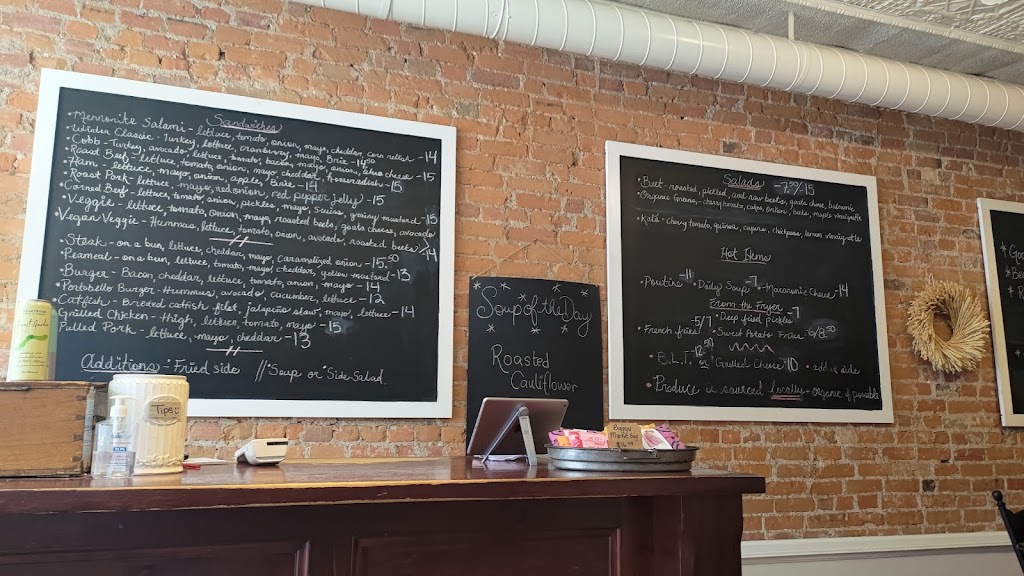 Sandwiches
• Mennonite Salami - lettuce, tomato, onion, mayo, cheddar, corn relish - 14
• Winter Classic - Turkey, lettuce, cranberry, mayo, Brie - 14.50
• Cobb - Turkey, avocado, lettuce, tomato, bacon, mayo, onion, blue cheese - 15
• Roast Beef - lettuce, tomato, onion, mayo, cheddar, horseradish - 15
• Ham - lettuce, mayo, onion, apple, Brie - 14
• Roast Pork - lettuce, mayo, red onion, red pepper jelly - 15
• Corned Beef - lettuce, tomato, onion, pickles, mayo, Swiss, grainy mustard - 15
• Veggie - lettuce, tomato, onion, mayo, roasted beets, goats cheese, avocado
• Vegan Veggie - Hummus, lettuce, tomato, onion, avocado, roasted beets - 14
• Steak - on a bun, lettuce, cheddar, mayo, caramelized onion - 15.50
• Peameal - on a bun, lettuce, tomato, mayo, cheddar, yellow mustard - 13
• Burger - Bacon, cheddar, lettuce, tomato, onion, mayo - 14
• Portobello Burger - Hummus, avocado, cucumber, lettuce - 12
• Catfish - Breaded catfish filet, jalapeño slaw, mayo, lettuce - 14
Grilled Chicken - thigh, lettuce, tomato, mayo - 15
Pulled Pork - lettuce, mayo, cheddar - 13
Additions - Fried side // Soup or Side Salad
Soup of the Day
Roasted
Cauliflower
Salads - 7.50/15
• Beet - roasted, pickled, and raw beets, goats cheese, balsamic
• Organic Greens - cherry tomato, cuke, onion, beets, maple vinaigrette
• Kale - cherry tomato, quinoa, capers, chickpeas, lemon vinaigrette
Hot Items
• Poutine - 11 • Daily Soup - 7 • Macaroni + Cheese - 14
From the Fryer
• French fries - 5/7 • Deep fried pickles - 7
• Sweet Potato Fries 6/8.50
• B.L.T. 12.50 or Grilled Cheese - 10 • add a side
• Produce is sourced locally + organic if possible
Tips